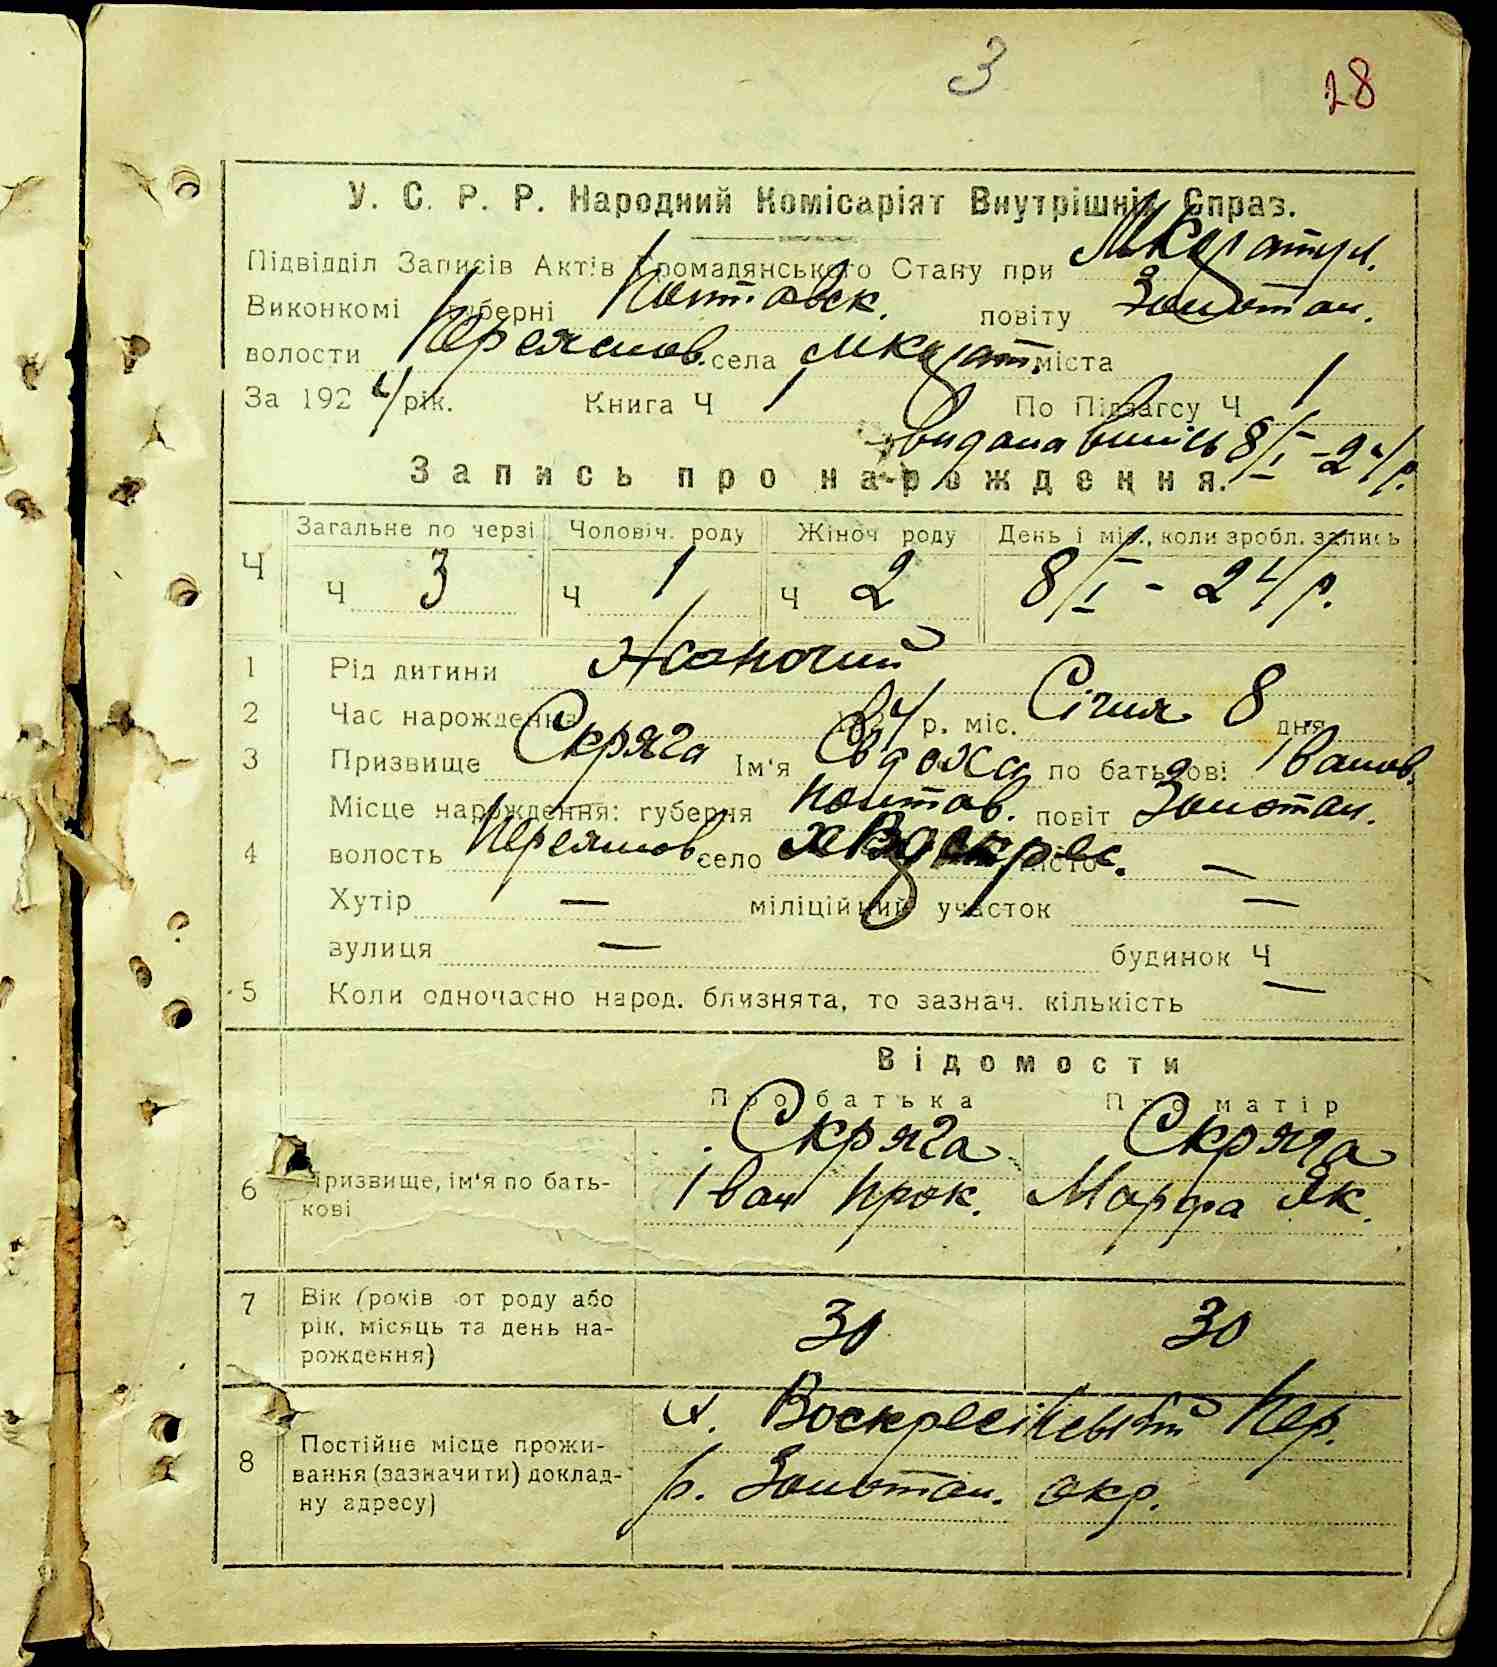 3
28
У. С. Р. Р. Народний Комісаріят Внутрішніх Справ.
Підвідділ Записів Актів Громадянського Стану при
Виконкомі губерні Полтавск. повіту Золотон.
волости Переяслов. села міста
За 1924 рік. Книга Ч 1 По Підзагсу Ч 1
видана 8/I-24 р.
Запись про нарождення.
Ч Загальне по черзі Чоловіч. роду Жіноч роду День і міс., коли зробл. запись
Ч 3 Ч 1 Ч 2 8/I - 24 р.
1 Рід дитини Жэночий
2 Час нарождення 1924 р. міс. Січня 8 дня
3 Призвище Скряга Ім'я Євдоха по батькові Іванов.
Місце нарождення: губерня Полтав. повіт Золотон.
4 волость Переяслов село х Воскрес. місто —
Хутір — міліційний участок —
вулиця — будинок Ч —
5 Коли одночасно народ. близнята, то зазнач. кількість
Відомости
Про батька Про матір
Скряга Скряга
6 Призвище, ім'я по бать- Іван Прок. Марфа Як.
кові
7 Вік (років от роду або
рік, місяць та день на- 30 30
рождення)
х. Воскресінський Пер.
8 Постійне місце прожи-
вання (зазначити) доклад- р. Золотон. окр.
ну адресу)